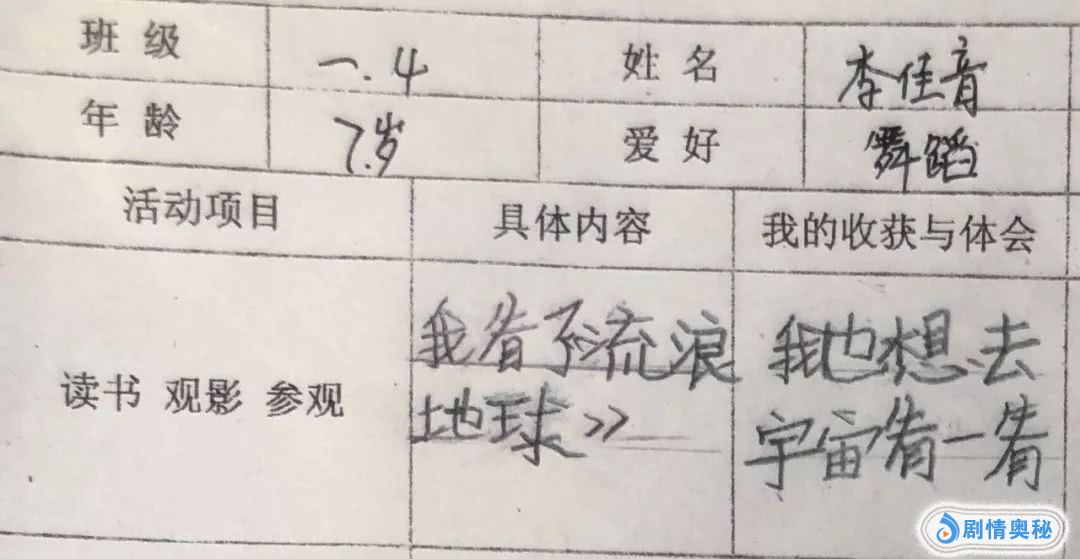 班级 一.4 姓名 李佳音
年龄 7.岁 爱好 舞蹈
活动项目 具体内容 我的收获与体会
读书 观影 参观
我看了流浪
地球>>
我也想去
宇宙看一看
剧情奥秘